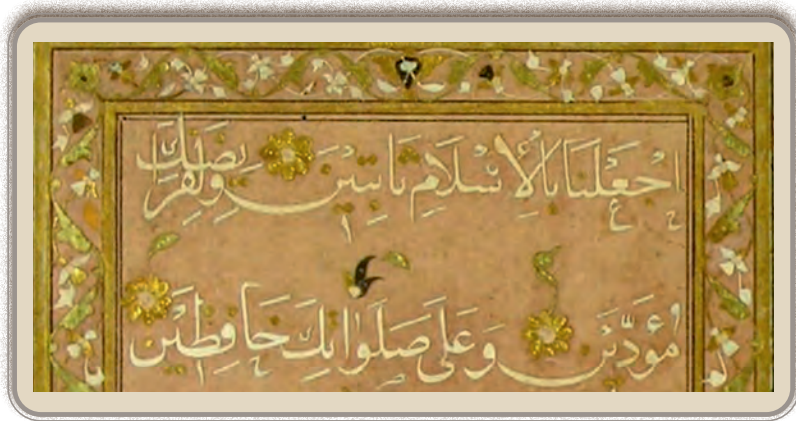 اجْعَلْنَا بِالْإِسْلَامِ وَلِفَرَائِضِكَ
مُؤَدِّينَ وَعَلَى صَلَوَاتِكَ حَافِظِين